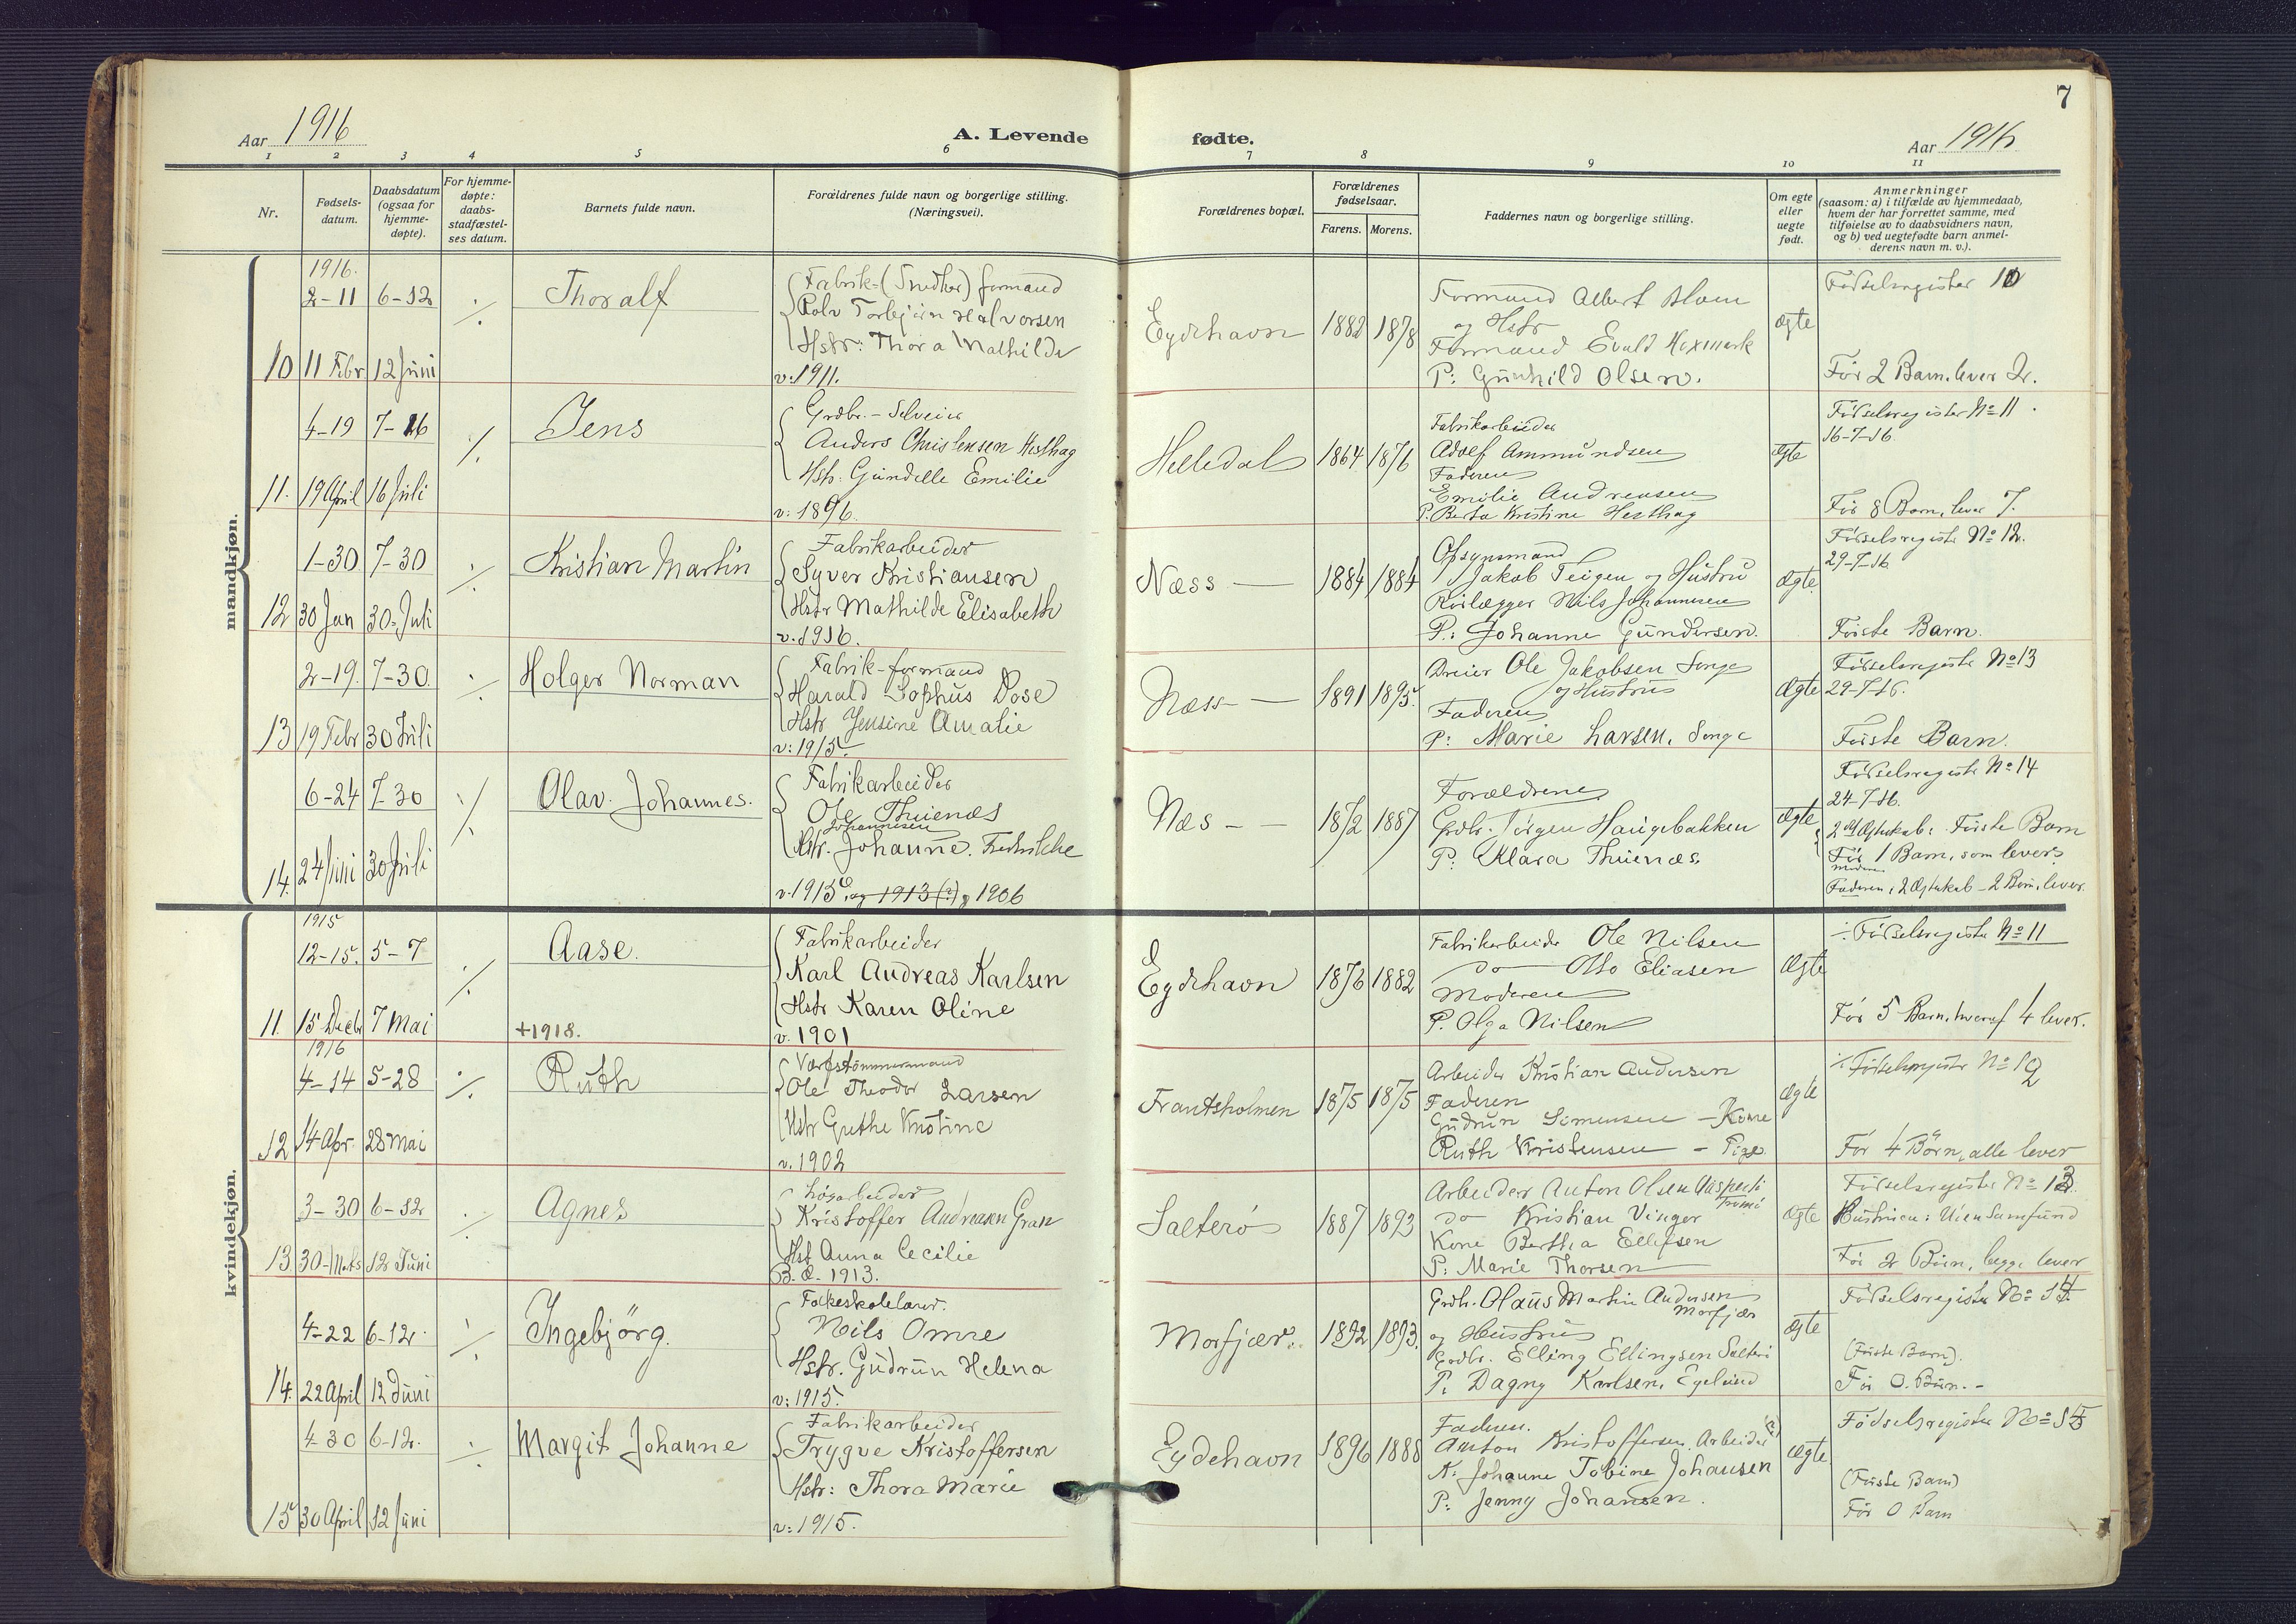 7
Aar 1916
A. Levende fødte.
Aar 1916
1 2 3 4 5 6 7 8 9 10 11
Nr.
Fødsels-
datum.
Daabsdatum
(ogsaa for
hjemme-
døpte).
For hjemme-
døpte:
daabs-
stadfæstel-
ses datum.
Barnets fulde navn.
Forældrenes fulde navn og borgerlige stilling.
(Næringsvei).
Forældrenes bopæl.
Forældrenes
fødselsaar.
Farens. Morens.
Faddernes navn og borgerlige stilling.
Om egte
eller
uegte
født.
Anmerkninger
(saasom: a) i tilfælde av hjemmedaab,
hvem der har forrettet samme, med
tilføielse av to daabsvidners navn,
og b) ved uegtefødte barn anmel-
derens navn m. v.).
mandkjøn.
1916.
2-11 6-12 ./.
10 11 Febr. 12 Juni
Thoralf
Fabrik-(Snedker) formand
Rolv Torbjørn Halvorsen
Hstr: Thora Mathilde
v: 1911.
Eydehavn 1882 1878
Formand Albert Blom
og Hstr
Formand Evald
P: Gunhild Olsen.
Ægte
Fødselsregister 10
Før 2 Barn, lever 2.
4-19 7-16 ./.
11. 19 April 16 Juli
Jens
Grdbr. - Selveier
Anders Christensen Hesthag
Hstr. Gundelle Emilie
v: 1896.
Helledal 1864 1876
Fabrikarbeider
Adolf Ammundsen
Faderen
Emilie Andreasen
P. Berta Kristine Hesthag
Ægte
Fødselsregister No 11.
16-7-16.
Før 8 Barn, lever 7.
1-30 7-30 ./.
12 30 Jan 30-Juli
Kristian Martin
Fabrikarbeider
Syver Kristiansen
Hstr Mathilde Elisabeth
v. 1916.
Næss — 1884 1884
Opsynsmand
Jakob Teigen og Hustru
Rørlægger Nils Johannesen
P.: Johanne Gundersen.
Ægte.
Fødselsregister No 12.
29-7-16
Første Barn.
2-19. 7-30. ./.
13 19 Febr 30 Juli
Holger Norman
Fabrik-formand
Harald Sophus Dose
Hstr Jensine Amalie
v: 1915.
Næss — 1891 1895.
Dreier Ole Jakobsen Songe
og Hustru
Faderen
P: Marie Larsen, Songe
Ægte
Fødselsregister No 13
29-7-16.
Første Barn.
6-24 7-30 ./.
14. 24 Juni 30 Juli
Olav. Johannes.
Fabrikarbeider
Ole Thuenæs
Johannesen
Hstr. Johanne. Fredrikke
v. 1915 og 1913 (?) og 1906
Næs — 1872 1887
Forældrene
Grdbr. Jørgen Haugebakken
P: Klara Thuenæs.
Ægte
Fødselsregister No 14
24-7-16.
2det Ægteskab: Første Barn
Før 1 Barn, som lever
Moderen
Faderen, 2 Ægteskab - 2 Børn, lever.
kvindekjøn.
1915
12-15. 5-7 ./.
11. 15 Decbr 7 Mai
Aase.
+1918.
Fabrikarbeider
Karl Andreas Karlsen
Hstr Karen Oline
v. 1901
Eydehavn 1876 1882
Fabrikarbeider Ole Nilsen
do — Otto Eliasen
Moderen
P. Olga Nilsen
Ægte
./. Fødselsregister No 11
Før 5 Barn, hvoraf 4 lever.
1916
4-14 5-28 ./.
12 14 Apr. 28 Mai
Ruth
Værfstømmermand
Ole Theodor Larsen
Hstr Grethe Kristine
v. 1902
Frantsholmen 1875 1875
Arbeider Kristian Andersen
Faderen
Gudrun Simensen — Kone
Ruth Kristensen — Pige.
Ægte
./. Fødselsregister No 12
Før 4 Børn, alle lever
3-30 6-12 ./.
13 30-Mrts 12 Juni
Agnes
Løsarbeider
Kristoffer Andreasen Gran
Hst Anna Cecilie
B. Æ. 1913.
Salterø 1887 1893
Arbeider Anton Olsen
do Kristian Vinger
Kone Bertha Ellefsen
P: Marie Thorsen
Ægte
Fødselsregister No 13.
Hustruen: Uien Samfund
Før 2 Børn, begge lever
4-22 6-12. ./.
14. 22 April 12 Juni
Ingebjörg.
Folkeskolelærer.
Nils Omre
Hstr. Gudrun Helena
v: 1915.
Morfjær. 1892 1893.
Grdbr. Olaus Martin Andersen
Morfjær
og Hustru
Grdbr. Elling Ellingsen Salterø
P. Dagny Karlsen, Egelund
Ægte
Fødselsregister No 14.
(Første Barn).
Før 0. Børn. -
4-30 6-12. ./.
15 30 April 12 Juni
Margit Johanne
Fabrikarbeider
Trygve Kristoffersen
Hstr: Thora Marie
v: 1915.
Eydehavn 1896 1888
Faderen.
Anton Kristoffersen. Arbeider (?)
K. Johanne Tobine Johansen
P: Jenny Johansen.
Ægte
Fødselsregister No 15
(Første Barn)
Før 0 Barn